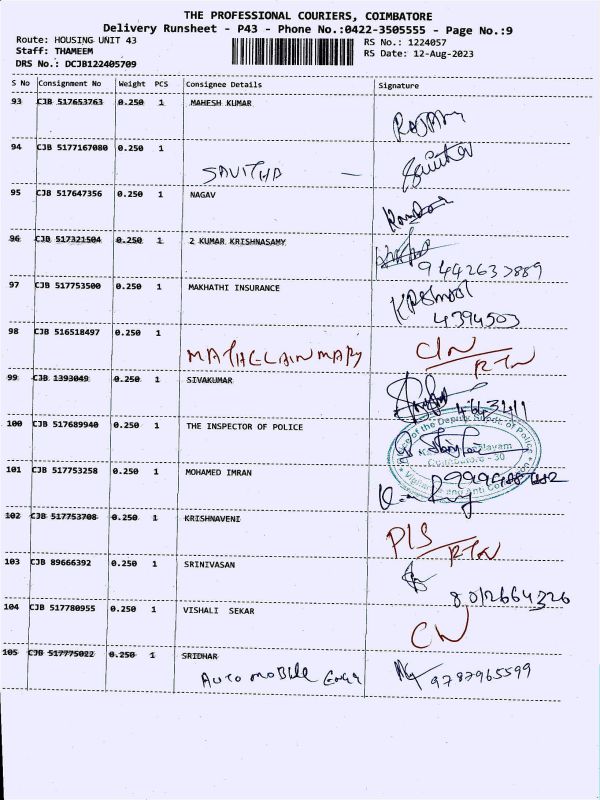 THE PROFESSIONAL COURIERS, COIMBATORE
Delivery Runsheet - P43 - Phone No.:0422-3505555 - Page No.:9
Route: HOUSING UNIT 43
RS No.: 1224057
Staff: THAMEEM
RS Date: 12-Aug-2023
DRS No.: DCJB122405709
S No Consignment No Weight PCS Consignee Details Signature
93 CJB 517653763 0.250 1 MAHESH KUMAR
94 CJB 5177167080 0.250 1
SAVITHA -
95 CJB 517647356 0.250 1 NAGAV
96 CJB 517321504 0.250 1 2 KUMAR KRISHNASAMY
9442637889
97 CJB 517753500 0.250 1 MAKHATHI INSURANCE
4394503
98 CJB 516518497 0.250 1
RTN
99 CJB 1393049 0.250 1 SIVAKUMAR
100 CJB 517689940 0.250 1 THE INSPECTOR OF POLICE
101 CJB 517753258 0.250 1 MOHAMED IMRAN
102 CJB 517753708 0.250 1 KRISHNAVENI
RTN
103 CJB 89666392 0.250 1 SRINIVASAN
8012664326
104 CJB 517780955 0.250 1 VISHALI SEKAR
105 CJB 517775022 0.250 1 SRIDHAR
AUTO MOBILE
9787965599